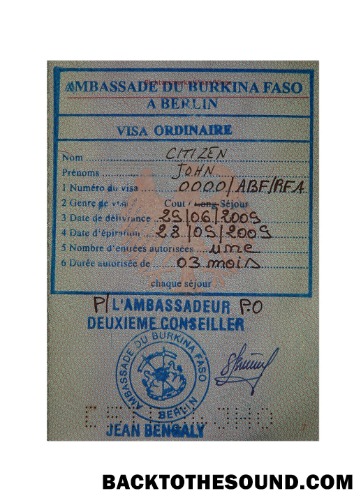 AMBASSADE DU BURKINA FASO
A BERLIN
VISA ORDINAIRE
Nom CITIZEN
Prénoms JOHN
1 Numéro du visa 0000/ABF/RFA
2 Genre de visa Court Long Séjour
3 Date de délivrance 29/06/2009
4 Date d'épiration 28/09/2009
5 Nombre d'entrées autorisées une
6 Durée autorisée de 03 mois
chaque séjour
P/ L'AMBASSADEUR P.O
DEUXIEME CONSEILLER
AMBASSADE DU BURKINA FASO
BERLIN
JEAN BENGALY
BACKTOTHESOUND.COM